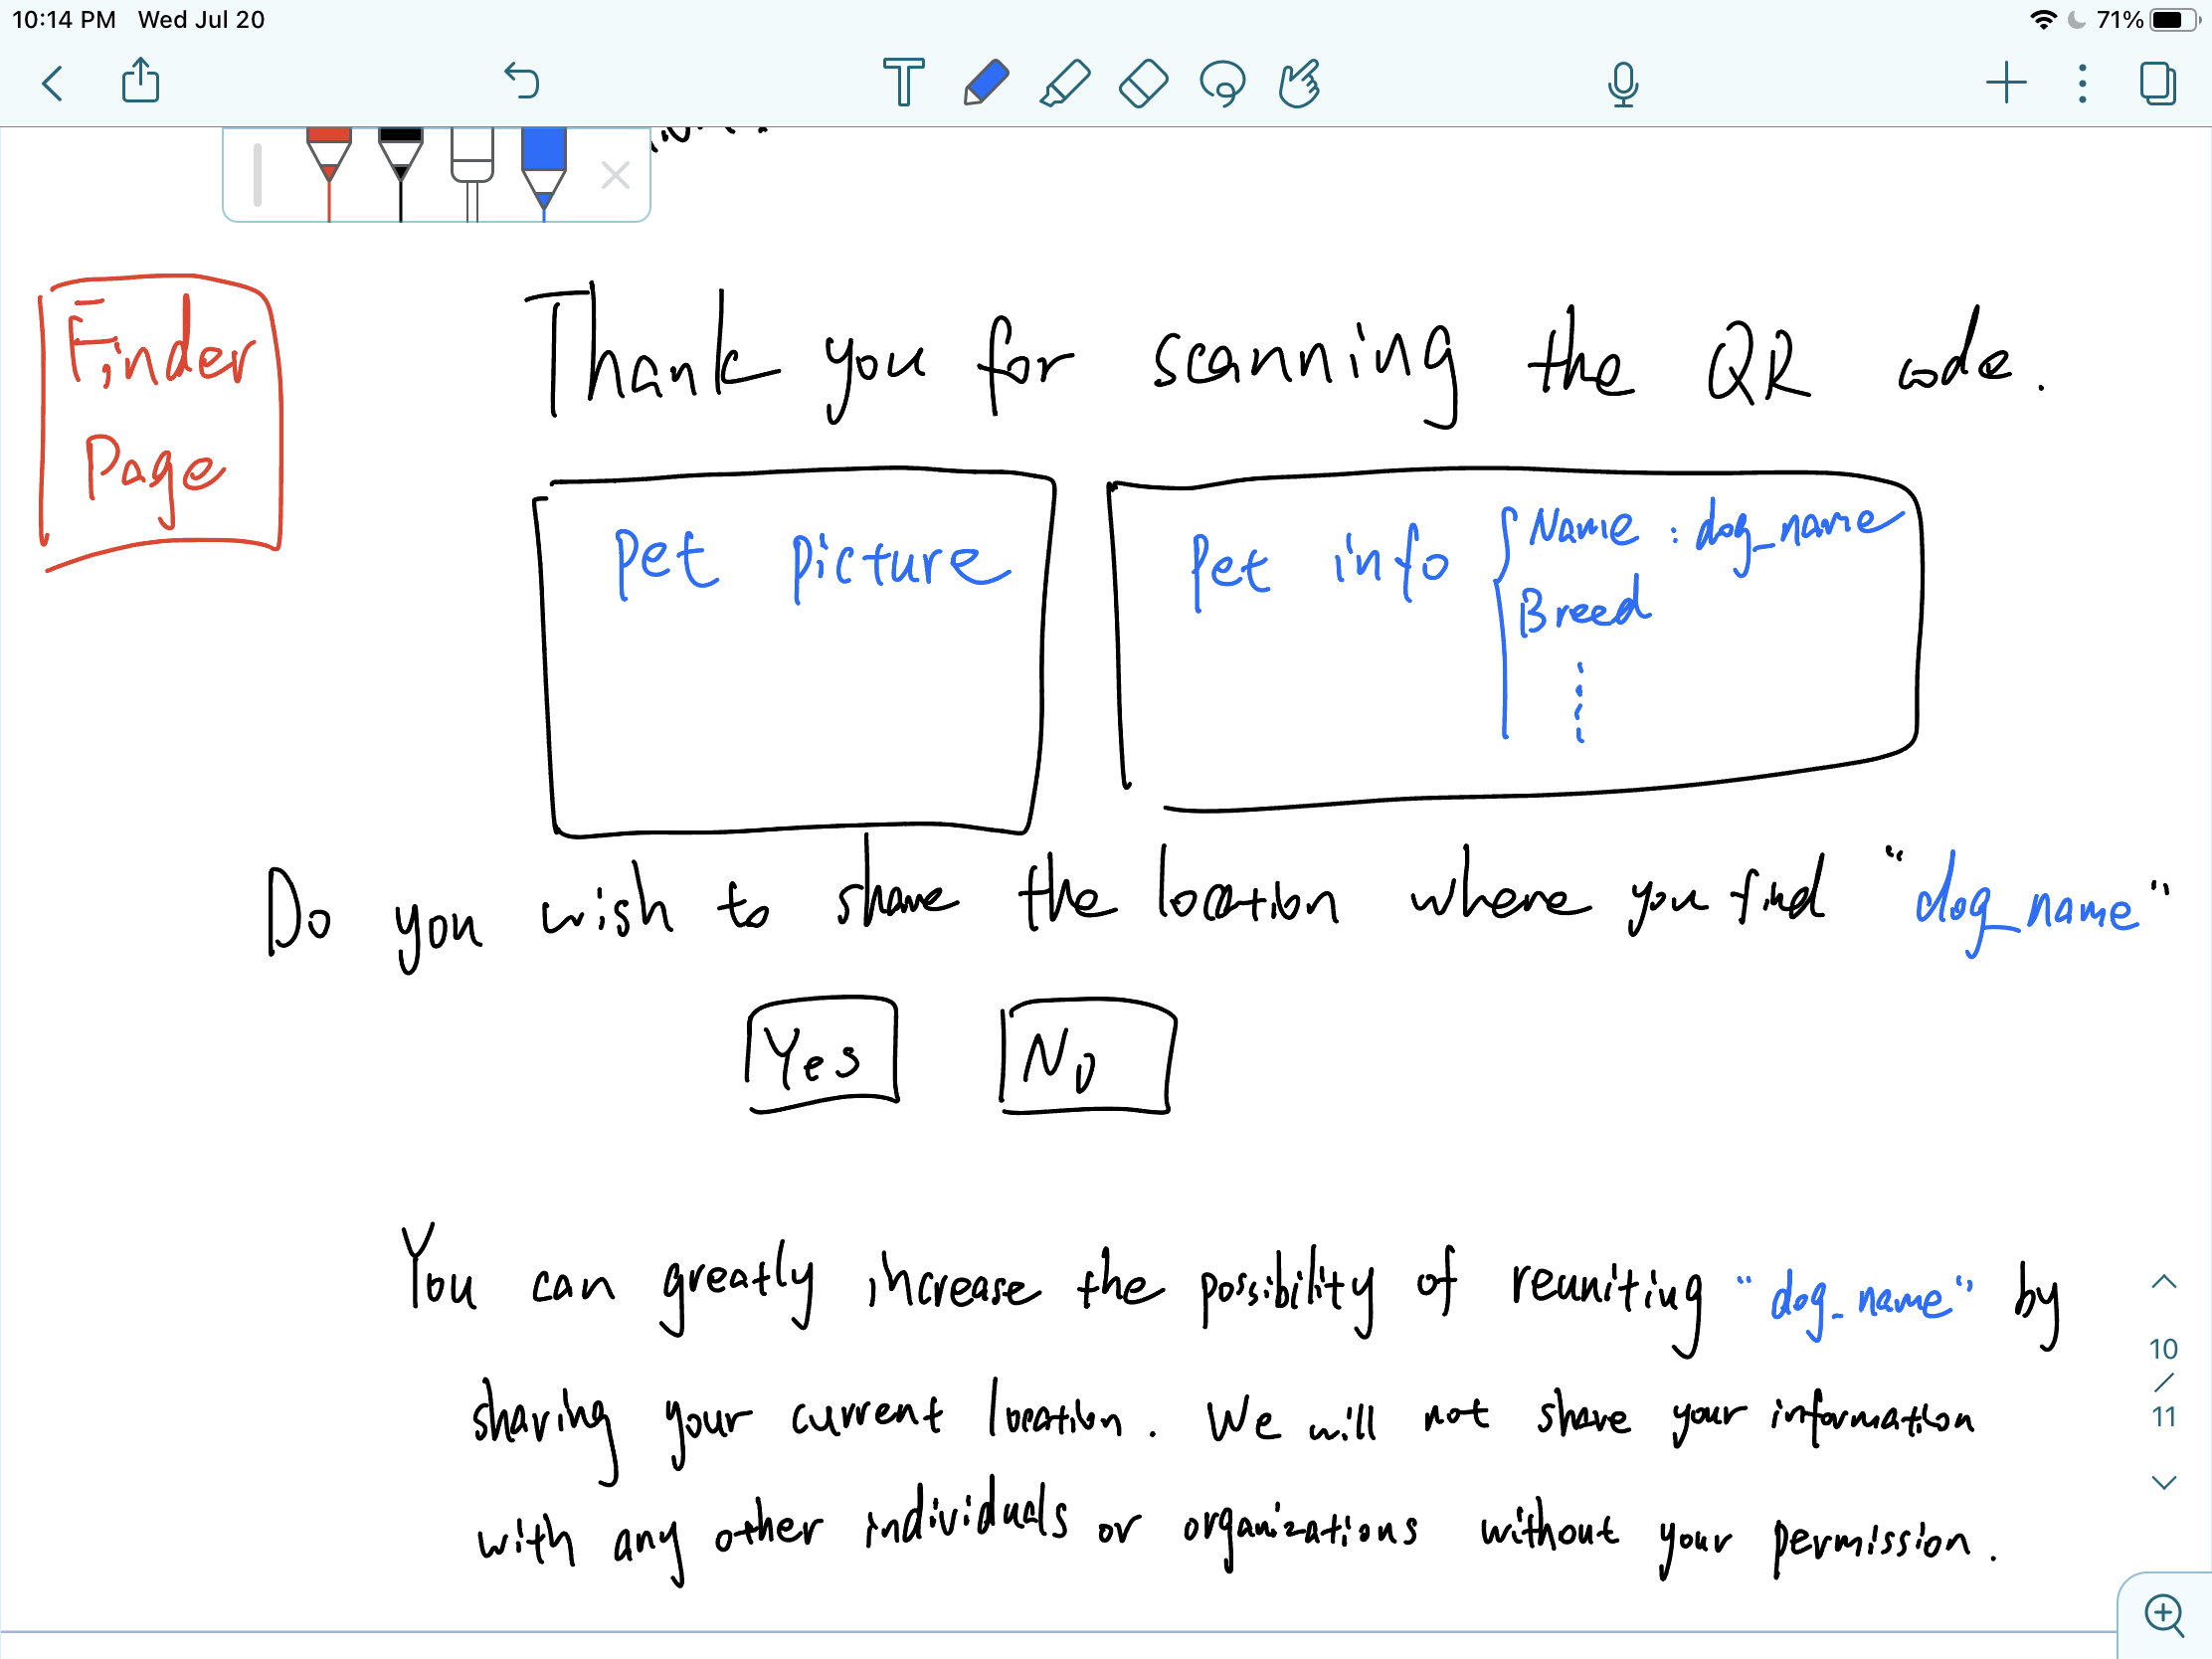 10:14 PM Wed Jul 20
71%
Finder
Page
Thank you for scanning the QR code.
Pet Picture
Pet info
Name : dog_name
Breed
Do you wish to share the location where you find "dog_name"
Yes
No
You can greatly increase the possibility of reuniting "dog_name" by
sharing your current location. We will not share your information
with any other individuals or organizations without your permission.
10
/
11